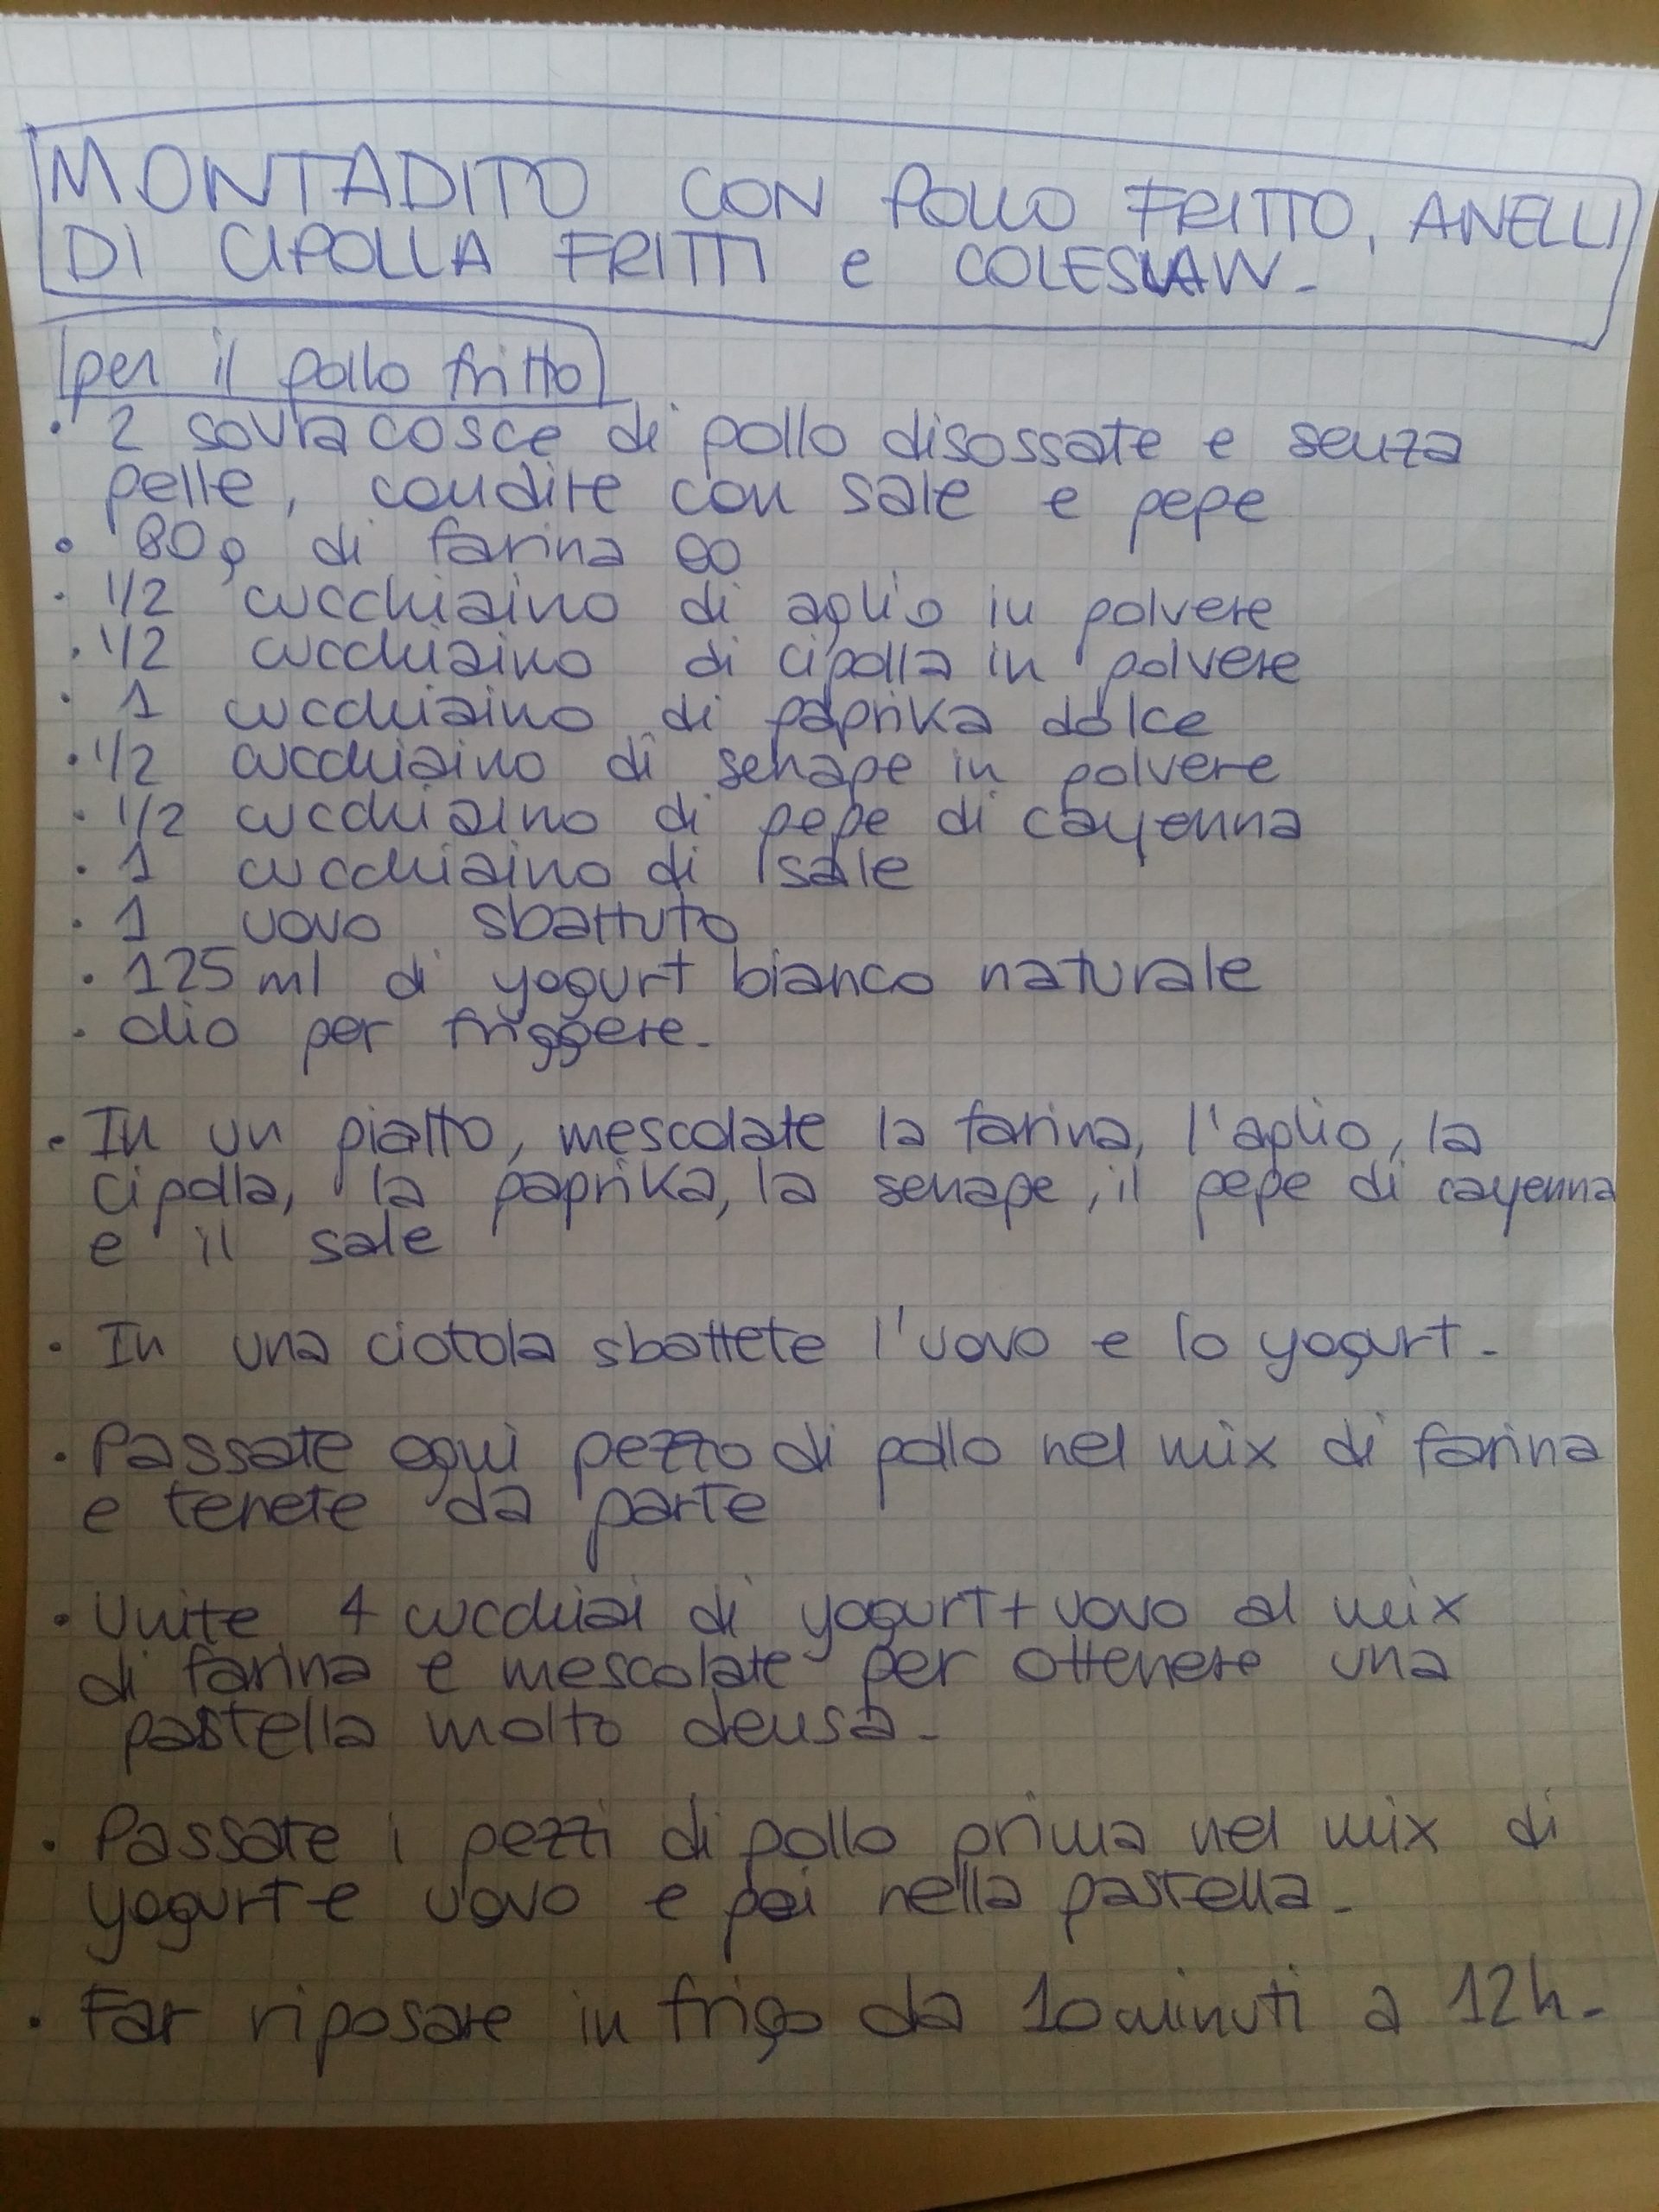 MONTADITO CON POLLO FRITTO, ANELLI
DI CIPOLLA FRITTI e COLESLAW-
per il pollo fritto
• 2 sovracosce di pollo disossate e senza
pelle, condite con sale e pepe
• 80g di farina 00
• 1/2 cucchiaino di aglio in polvere
• 1/2 cucchiaino di cipolla in polvere
• 1 cucchiaino di paprika dolce
• 1/2 cucchiaino di senape in polvere
• 1/2 cucchiaino di pepe di cayenna
• 1 cucchiaino di sale
• 1 uovo sbattuto
• 125 ml di yogurt bianco naturale
• olio per friggere-
• In un piatto, mescolate la farina, l'aglio, la
cipolla, la paprika, la senape, il pepe di cayenna
e il sale
• In una ciotola sbattete l'uovo e lo yogurt-
• Passate ogni pezzo di pollo nel mix di farina
e tenete da parte
• Unite 4 cucchiai di yogurt+uovo al mix
di farina e mescolate per ottenere una
pastella molto densa-
• Passate i pezzi di pollo prima nel mix di
yogurt e uovo e poi nella pastella-
• Far riposare in frigo da 10 minuti a 12h-